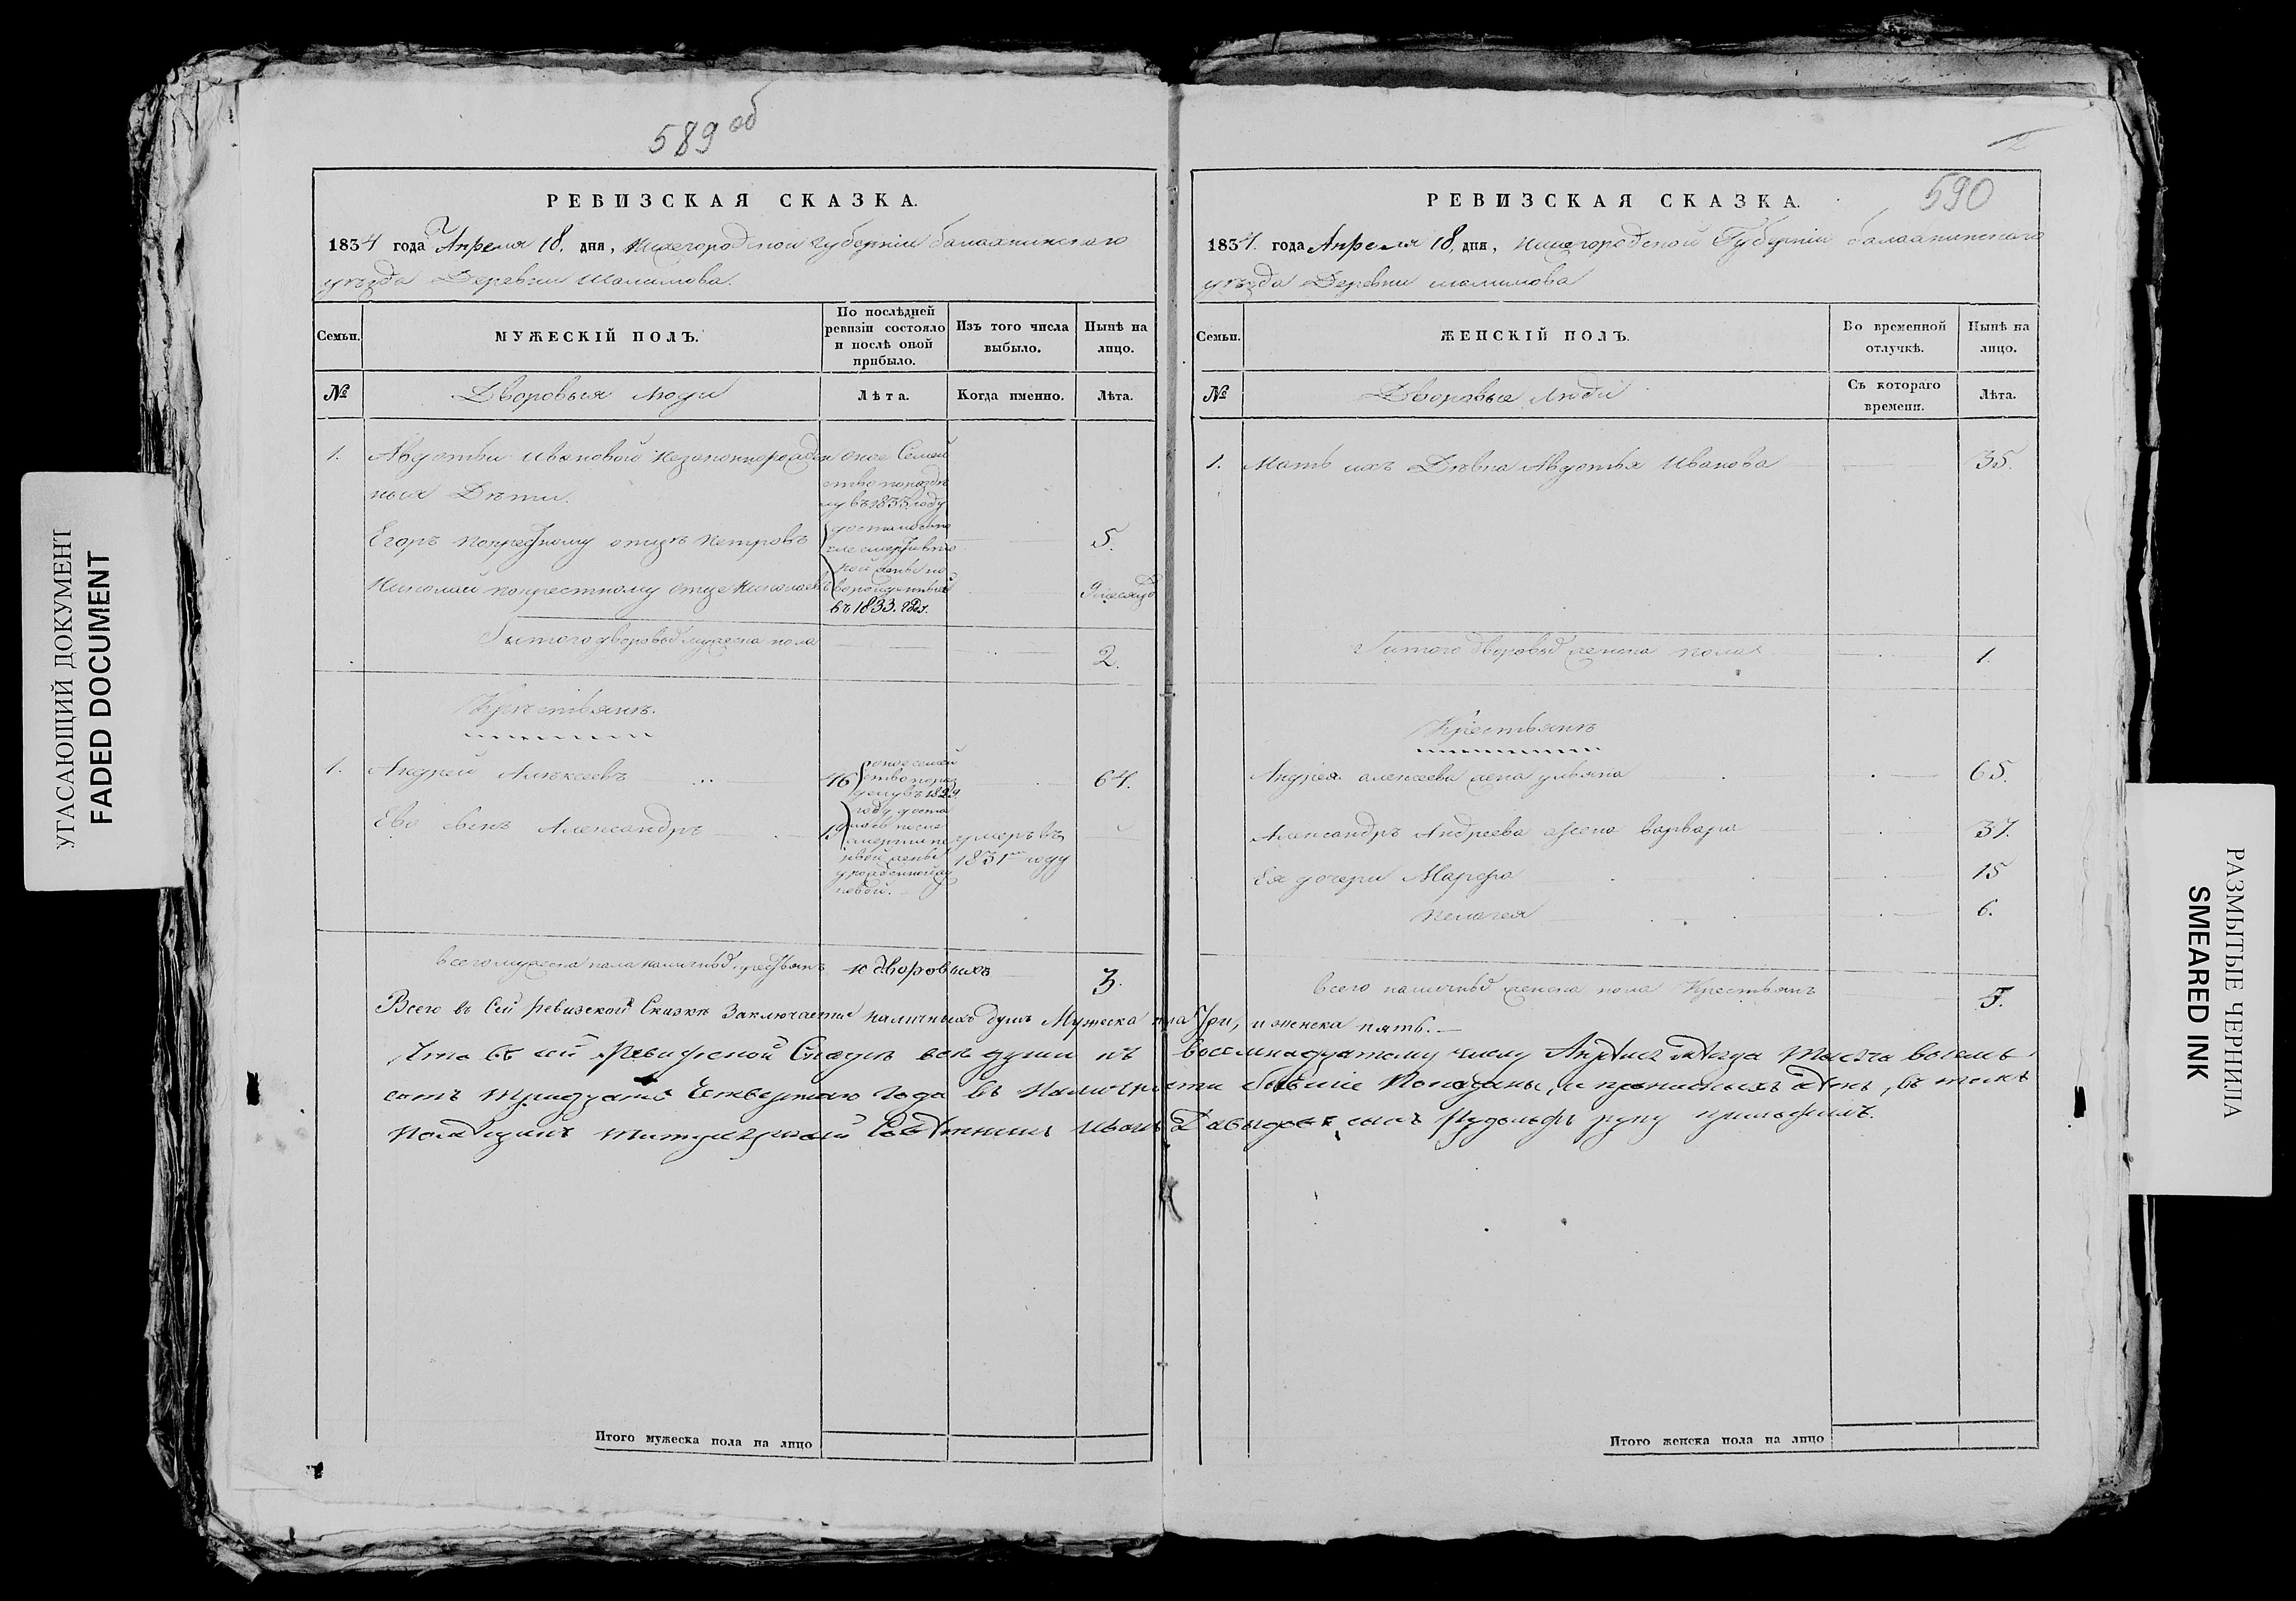 УГАСАЮЩИЙ ДОКУМЕНТ
FADED DOCUMENT
589 об
РЕВИЗСКАЯ СКАЗКА.
1834 года Апреля 18. дня, Нижегородской губерніи балахнинскаго
уѣзда Деревни Шалимова.
Семьи.
МУЖЕСКІЙ ПОЛЪ.
По послѣдней
ревизіи состояло
и послѣ оной
прибыло.
Изъ того числа
выбыло.
Нынѣ на
лицо.
№
Дворовыя люди
Лѣта.
Когда именно.
Лѣта.
1. Авдотьи Ивановой незаконнорожден
ныя Дѣти.
оное Семей
ство по раздѣ
лу въ 1833 году
Егоръ по крестному отцѣ Петровъ
5.
Николай по крестному отце Николаевъ
9 месяцъ
въ 1833. году.
Итого дворовыхъ мужеска пола
2.
Крестьянъ.
1. Андрей Алексеевъ
46
оное семей
ство по раз
делу въ 1829.
году доста
лось после
смерти
64.
Ево сынъ Александръ
19
умеръ въ
1831м году
всего мужеска пола наличныхъ крестьянъ и дворовыхъ
3.
Всего въ Сей ревизской Сказкѣ Заключается наличныхъ душъ Мужеска пола Три, и женска пять.
Что въ сей Ревизской Сказкѣ все души къ восемнадцатому числу Апреля
сотъ тридцать Четвертаго Года въ Наличности бывшіе Показаны, и прописныхъ нетъ, въ томъ
Титулярный Советникъ Иванъ Давыдовъ сынъ Рудольфъ руку приложилъ.
Итого мужеска пола на лицо
2
590
РЕВИЗСКАЯ СКАЗКА.
1834. года Апреля 18, дня, Нижегородской Губерніи балахнинскаго
уѣзда Деревни шалимова
Семьи.
ЖЕНСКІЙ ПОЛЪ.
Во временной
отлучкѣ.
Нынѣ на
лицо.
№
Дворовые Люди
Съ котораго
времени.
Лѣта.
1. Мать ихъ Дѣвка Авдотья Иванова
35.
Итого дворовыхъ женска пола
1.
Крестьянъ
Андрея алексеева жена ульяна
65.
Александръ Андреева жена варвара
37.
Ея дочери Марфа
15
Пелагея
6.
всего наличныхъ женска пола Крестьянъ
5.
Итого женска пола на лицо
РАЗМЫТЫЕ ЧЕРНИЛА
SMEARED INK